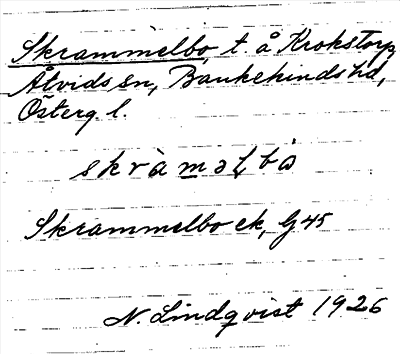 Skrammelbo, t. å Krokstorp,
Åtvids sn, Bankekinds hd,
Österg. l.
skràmǝɭbò
Skrammelbo ek, G 45
N. Lindqvist 1926